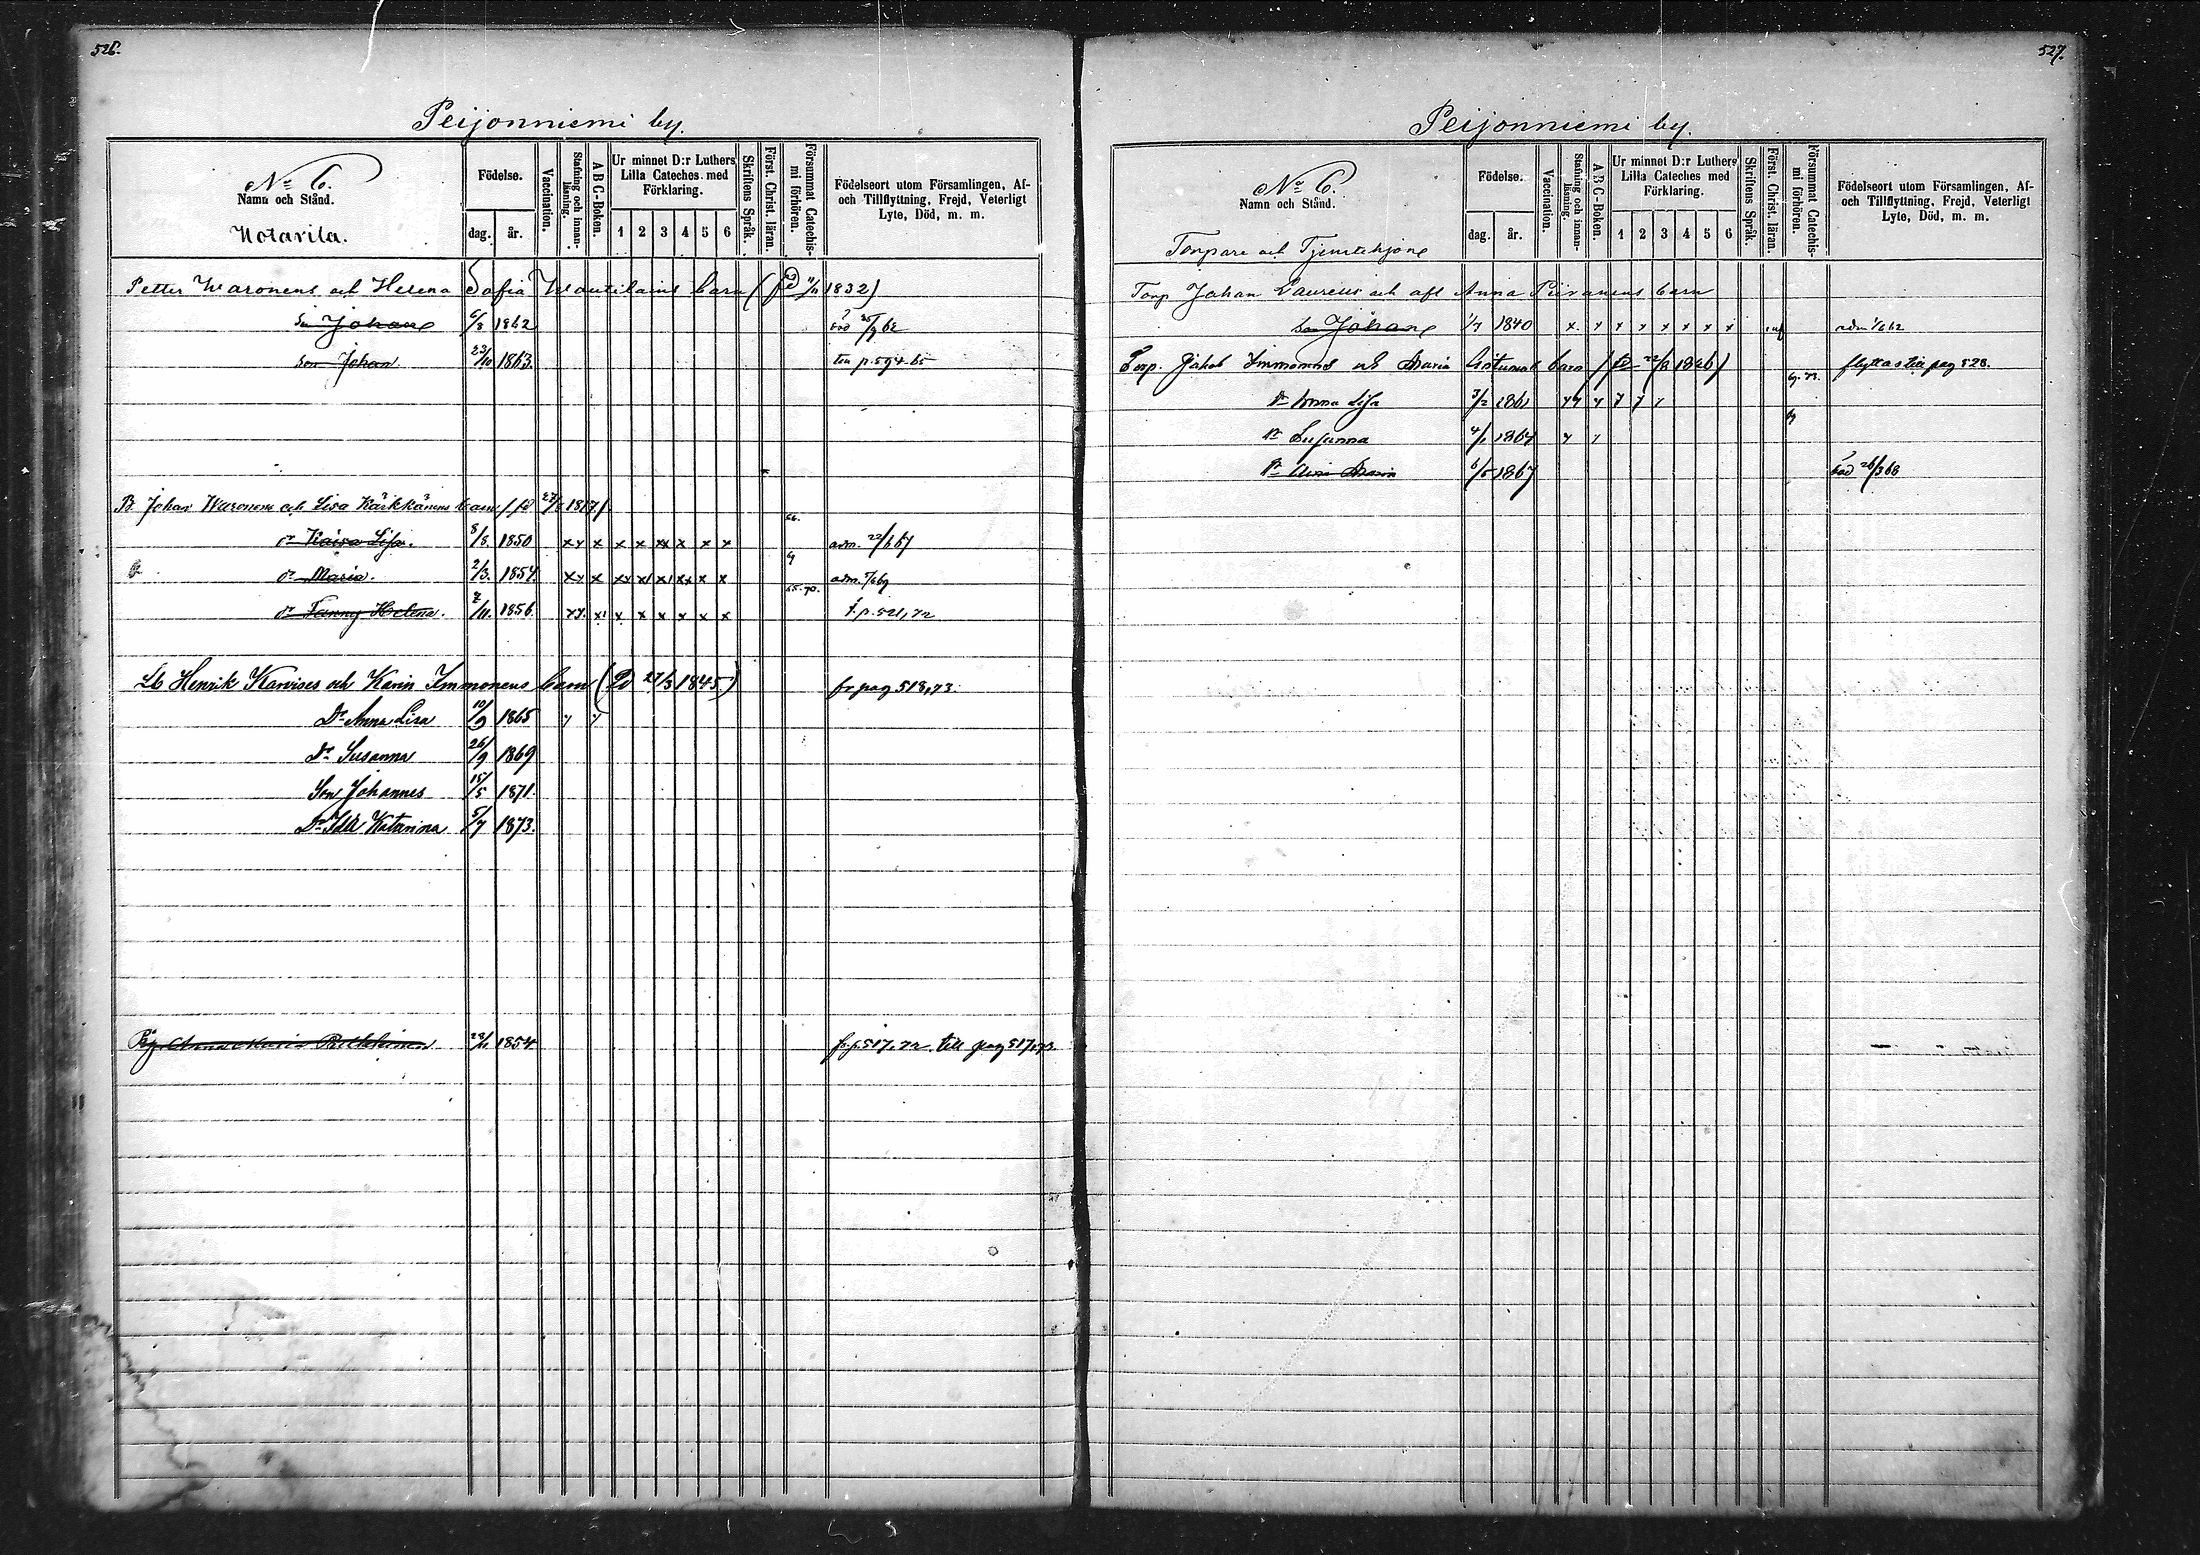 526.
Peijonniemi by.
No 6.
Namn och Stånd.
Notavila.
Födelse.
dag. år.
Vaccination.
Stafning och innanläsning.
A B C-Boken.
Ur minnet D:r Luthers Lilla Cateches. med Förklaring.
1 2 3 4 5 6
Skriftens Språk.
Först. Christ. läran.
Försummat Catechismi förhören.
Födelseort utom Församlingen, Af- och Tillflyttning, Frejd, Veterligt Lyte, Död, m. m.
Petter Waronens och Helena Sofia barn (fd 1832)
Son Johan 6/8 1862 död 25/9 62
Son Johan 23/10 1863. till p. 594. 65
B. Johan Waronens och Lisa Kärkkänens barn (fd 1817)
66.
dr Kaisa Lisa. 8/8. 1850 xx x x x xx x x x adm. 22/6 67
dr Maria. 2/3. 1854. x x
65. 70.
dr Fanny Helena. 7/10. 1856. x x x x x x f. p. 521, 72
Lb Henrik och Karin Immonens barn (fd 27/3 1845) fr pag 518, 73.
Dr Anna Lisa 10/9 1865
Dr Susanna 26/9 1869
Son Johannes 15/5 1871.
Dr Ida Katarina 5/7 1873.
Pig. Anna Maria 1854 fr. p. 517, 72. till pag 517, 73.
527.
Peijonniemi by.
No 6.
Namn och Stånd.
Torpare och Tjenstehjone
Födelse.
dag. år.
Vaccination.
Stafning och innanläsning.
A B C-Boken.
Ur minnet D:r Luthers Lilla Cateches med Förklaring.
1 2 3 4 5 6
Skriftens Språk.
Först. Christ. läran.
Försummat Catechismi förhören.
Födelseort utom Församlingen, Af- och Tillflyttning, Frejd, Veterligt Lyte, Död, m. m.
Torp Johan Laurens och afl Anna Piiranens barn
Son Johan 1/7 1840 x x x x x x x x
Torp. Jakob Immonens och Maria barn (fd 22/2 1826) flyttas till pag 528.
Dr Anna Lisa 3/2 1861
Dr Susanna 4/1 1864
Dr Maria 6/5 1867 död 26/3 68